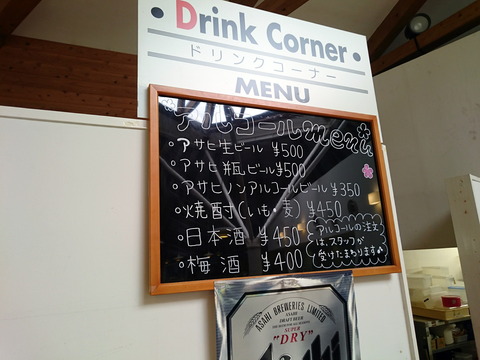 • Drink Corner •
ドリンクコーナー
MENU
アルコールmenu
・アサヒ生ビール ¥500
・アサヒ瓶ビール ¥500
・アサヒノンアルコールビール ¥350
・焼酎(いも・麦) ¥450
・日本酒 ¥450
・梅酒 ¥400
アルコールの注文
は、スタッフが
受けたまわります♪
ASAHI BREWERIES LIMITED
ASAHI
DRAFT BEER
SUPER
"DRY"